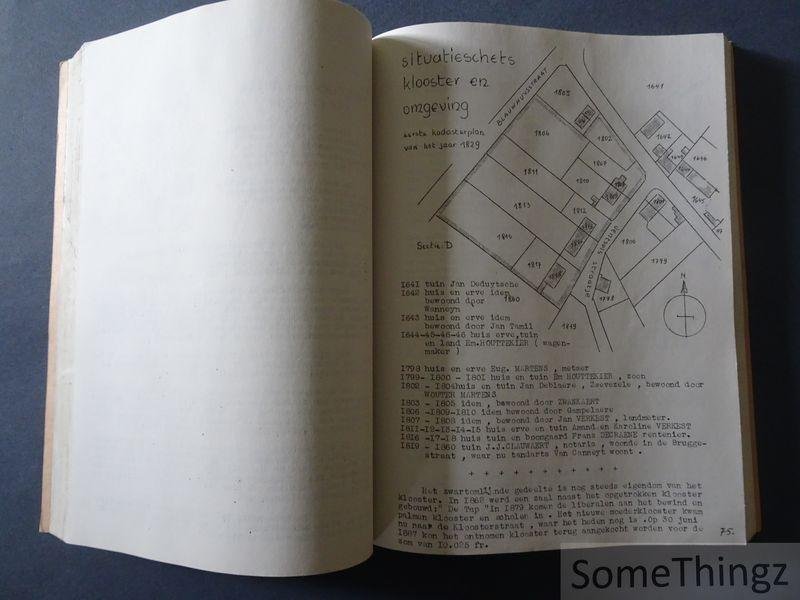 situatieschets
klooster en
omgeving
eerste kadasterplan
van het jaar 1829
BLAUWHUYSSTRAAT
Sectie: D
1805
1804
1802
1811
1807
1810
1813
1812
1816
1817
1641
1642
1646
1645
1800
1799
1798
1860
1819
N
I641 tuin Jan Deduytsche
I642 huis en erve idem
bewoond door
Wanneyn
I643 huis en erve idem
bewoond door Jan Tamil
I644-45-46-46 huis erve,tuin
en land Em.HOUTTEKIER ( wagen-
maker )
I798 huis en erve Eug. MARTENS , metser
I799- I800 - I80I huis en tuin Em HOUTTEKIER , zoon
I802 - I804huis en tuin Jan Deblaere , Zsevezele , bewoond door
WOUTER MARTENS
I803 - I805 idem , bewoond door ZWANKAERT
I806 -I809-I8I0 idem bewoond door Gampelaere
I807 - I808 idem , bewoond door Jan VERKEST , landmeter.
I8II-I2-I3-I4-I5 huis erve en tuin Amand.en Karoline VERKEST
I8I6 -I7-I8 huis tuin en boomgaard Frans DEGRAENE rentenier.
I8I9 - I860 tuin J.J.CLAUWAERT , notaris , woonde in de Brugge-
straat , waar nu tandarts Van Canneyt woont .
+ + + + + + + + + + +
Het zwartomlijnde gedeelte is nog steeds eigendom van het
klooster. In I862 werd een zaal naast het opgetrokken klooster
gebouwd:" De Tap "In I879 komen de liberalen aan het bewind en
palmen klooster en scholen in . Het nieuwe moederklooster kwam
nu naar de Kloosterstraat , waar het heden nog is .Op 30 juni
I887 kon het ontnomen klooster terug aangekocht worden voor de
som van I0.025 fr.
75.
SomeThingz